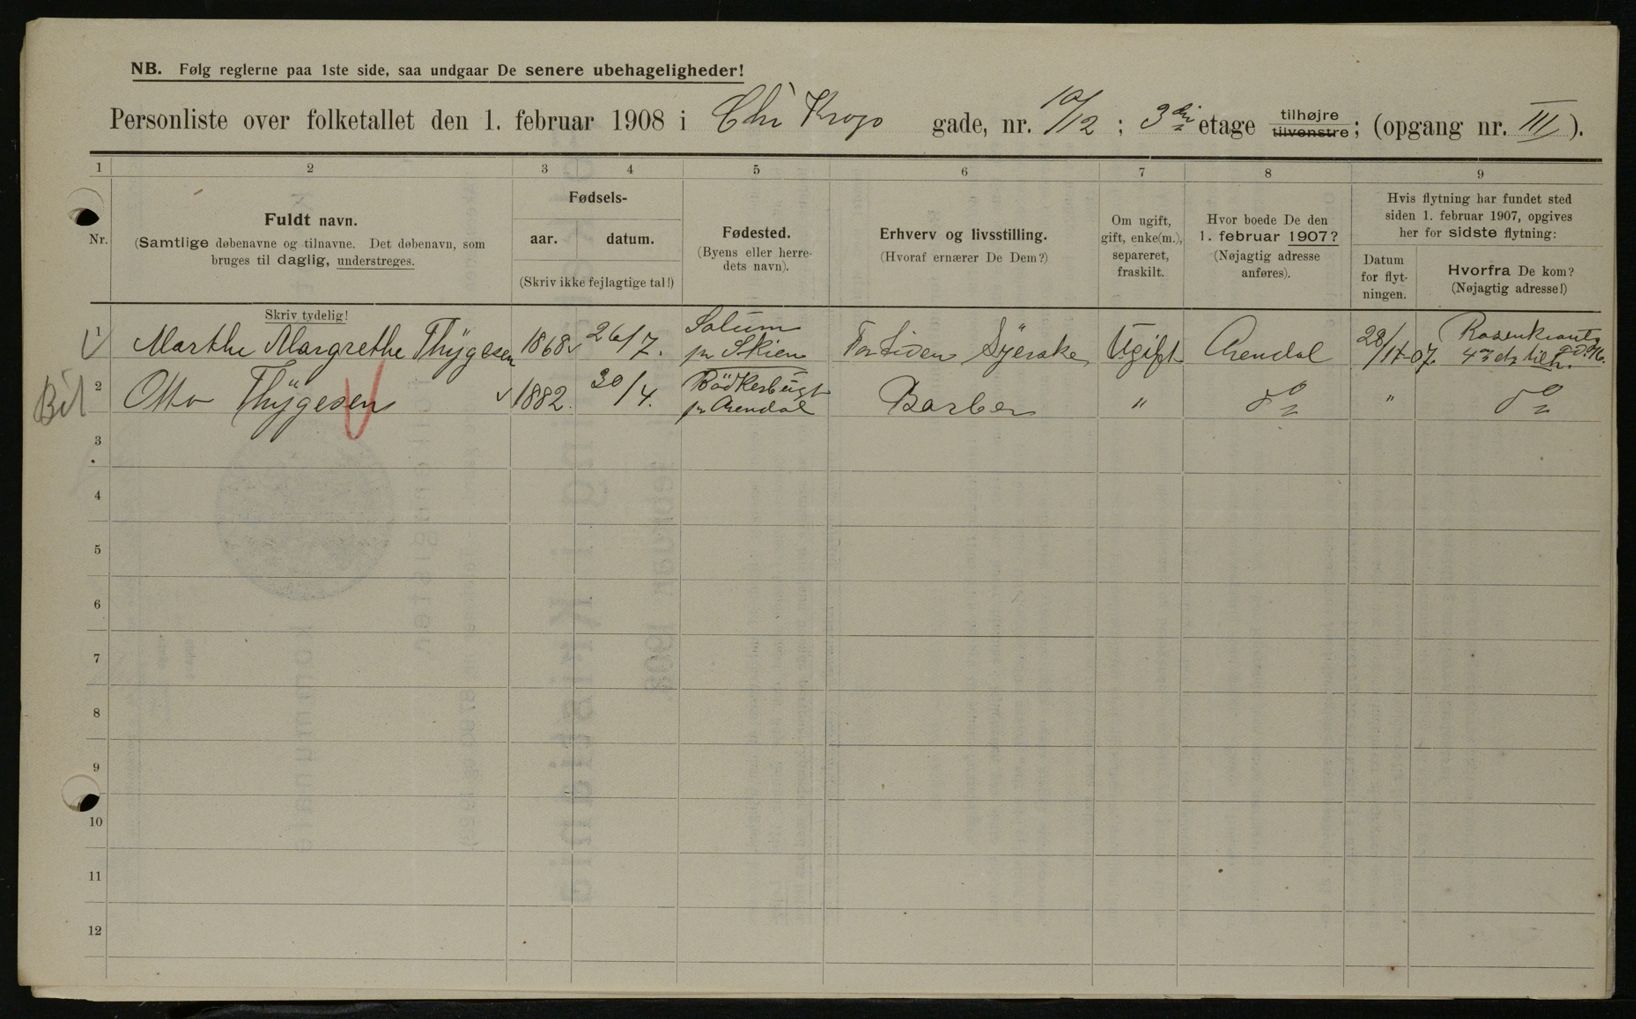 NB. Følg reglerne paa 1ste side, saa undgaar De senere ubehageligheder!
Personliste over folketallet den 1. februar 1908 i Chr Krogs gade, nr. 10/12 ; 3die etage tilhøjre tilvenstre ; (opgang nr. III ).
1 2 3 4 5 6 7 8 9
Nr.
Fuldt navn.
(Samtlige døbenavne og tilnavne. Det døbenavn, som
bruges til daglig, understreges.
Skriv tydelig!
Fødsels-
aar. datum.
(Skriv ikke fejlagtige tal!)
Fødested.
(Byens eller herre-
dets navn).
Erhverv og livsstilling.
(Hvoraf ernærer De Dem?)
Om ugift,
gift, enke(m.),
separeret,
fraskilt.
Hvor boede De den
1. februar 1907?
(Nøjagtig adresse
anføres).
Hvis flytning har fundet sted
siden 1. februar 1907, opgives
her for sidste flytning:
Datum
for flyt-
ningen.
Hvorfra De kom?
(Nøjagtig adresse!)
1 Marthe Margrethe Thygesen 1868 26/7. Solum pr Skien For Tiden Syerske Ugift Arendal 28/11-07 Rosenkrants
2 Otto Thygesen 1882. 30/4. pr Arendal Barber " do " do
3
4
5
6
7
8
9
10
11
12